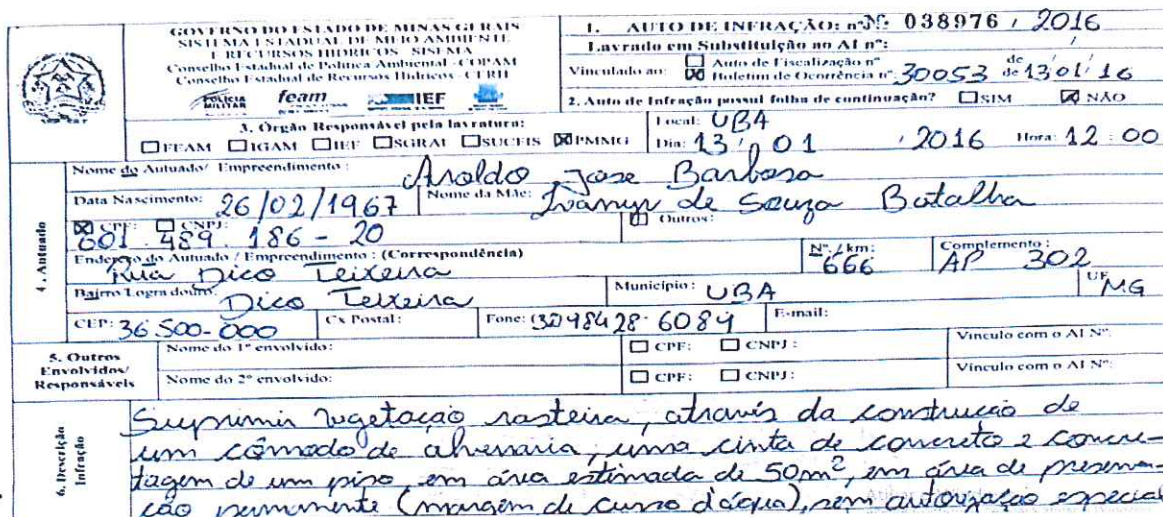 GOVERNO DO ESTADO DE MINAS GERAIS
SISTEMA ESTADUAL DE MEIO AMBIENTE
E RECURSOS HIDRICOS - SISEMA
Conselho Estadual de Política Ambiental - COPAM
Conselho Estadual de Recursos Hídricos - CERH
POLÍCIA MILITAR feam IEF
1. AUTO DE INFRAÇÃO: nº Nº 038976 / 2016
Lavrado em Substituição ao AI nº: /
Vinculado ao: ☐ Auto de Fiscalização nº de
☒ Boletim de Ocorrência nº: 30053 de 13/01/16
2. Auto de Infração possui folha de continuação? ☐ SIM ☒ NÃO
3. Órgão Responsável pela lavratura:
☐ FEAM ☐ IGAM ☐ IEF ☐ SGRAI ☐ SUCFIS ☒ PMMG
Local: UBA
Dia: 13 / 01 / 2016 Hora: 12:00
4. Autuado
Nome do Autuado/ Empreendimento: Aroldo Jose Barbosa
Data Nascimento: 26/02/1967 Nome da Mãe: de Souza Batalha
☒ CPF: ☐ CNPJ: ☐ Outros:
601.489.186-20
Endereço do Autuado / Empreendimento: (Correspondência) Nº. / km: Complemento:
Rua Dico Teixeira 666 AP 302
Bairro/Logradouro: Dico Teixeira Município: UBA UF MG
CEP: 36.500-000 Cx Postal: Fone: (32)98428-6089 E-mail:
5. Outros Envolvidos/ Responsáveis
Nome do 1º envolvido: ☐ CPF: ☐ CNPJ: Vínculo com o AI Nº:
Nome do 2º envolvido: ☐ CPF: ☐ CNPJ: Vínculo com o AI Nº:
6. Descrição Infração
Suprimir vegetação rasteira, através da construção de
um cômodo de alvenaria, uma cinta de concreto e concre-
tagem de um piso, em área estimada de 50m², em área de preserva-
ção permanente (margem de curso d'água), sem autorização especial